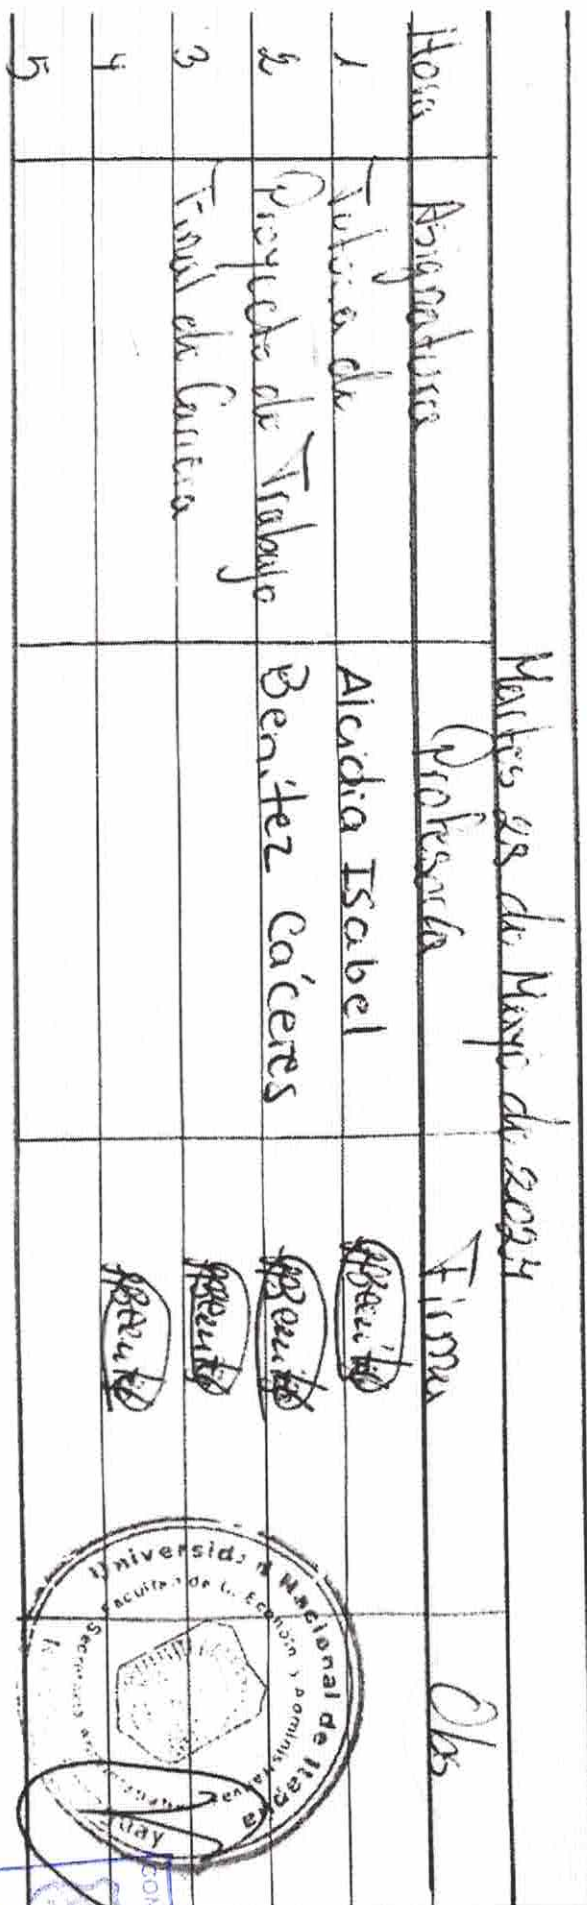 Martes 28 de Mayo de 2024
Hora Asignatura Profesor/a Firma Obs
1 Tutoría de Alcidia Isabel ABenitez
2 Proyecto de Trabajo Benítez Cáceres ABenitez
3 Final de Carrera ABenitez
4 ABenitez
5
Universidad Nacional de Itapúa
Facultad de